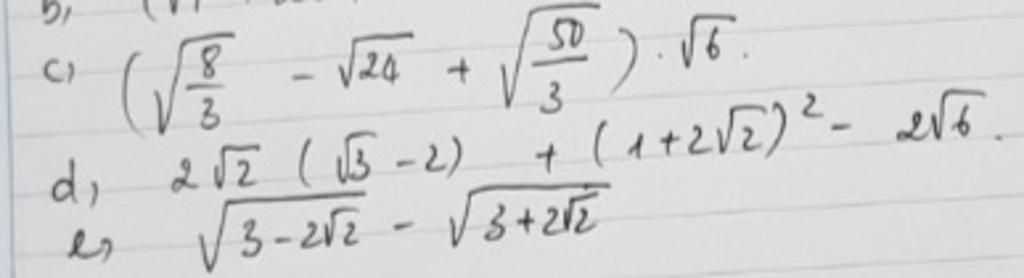 b,
c) (√(8/3) - √24 + √(50/3)) . √6.
d, 2√2 (√3 - 2) + (1 + 2√2)² - 2√6.
e, √(3 - 2√2) - √(3 + 2√2)